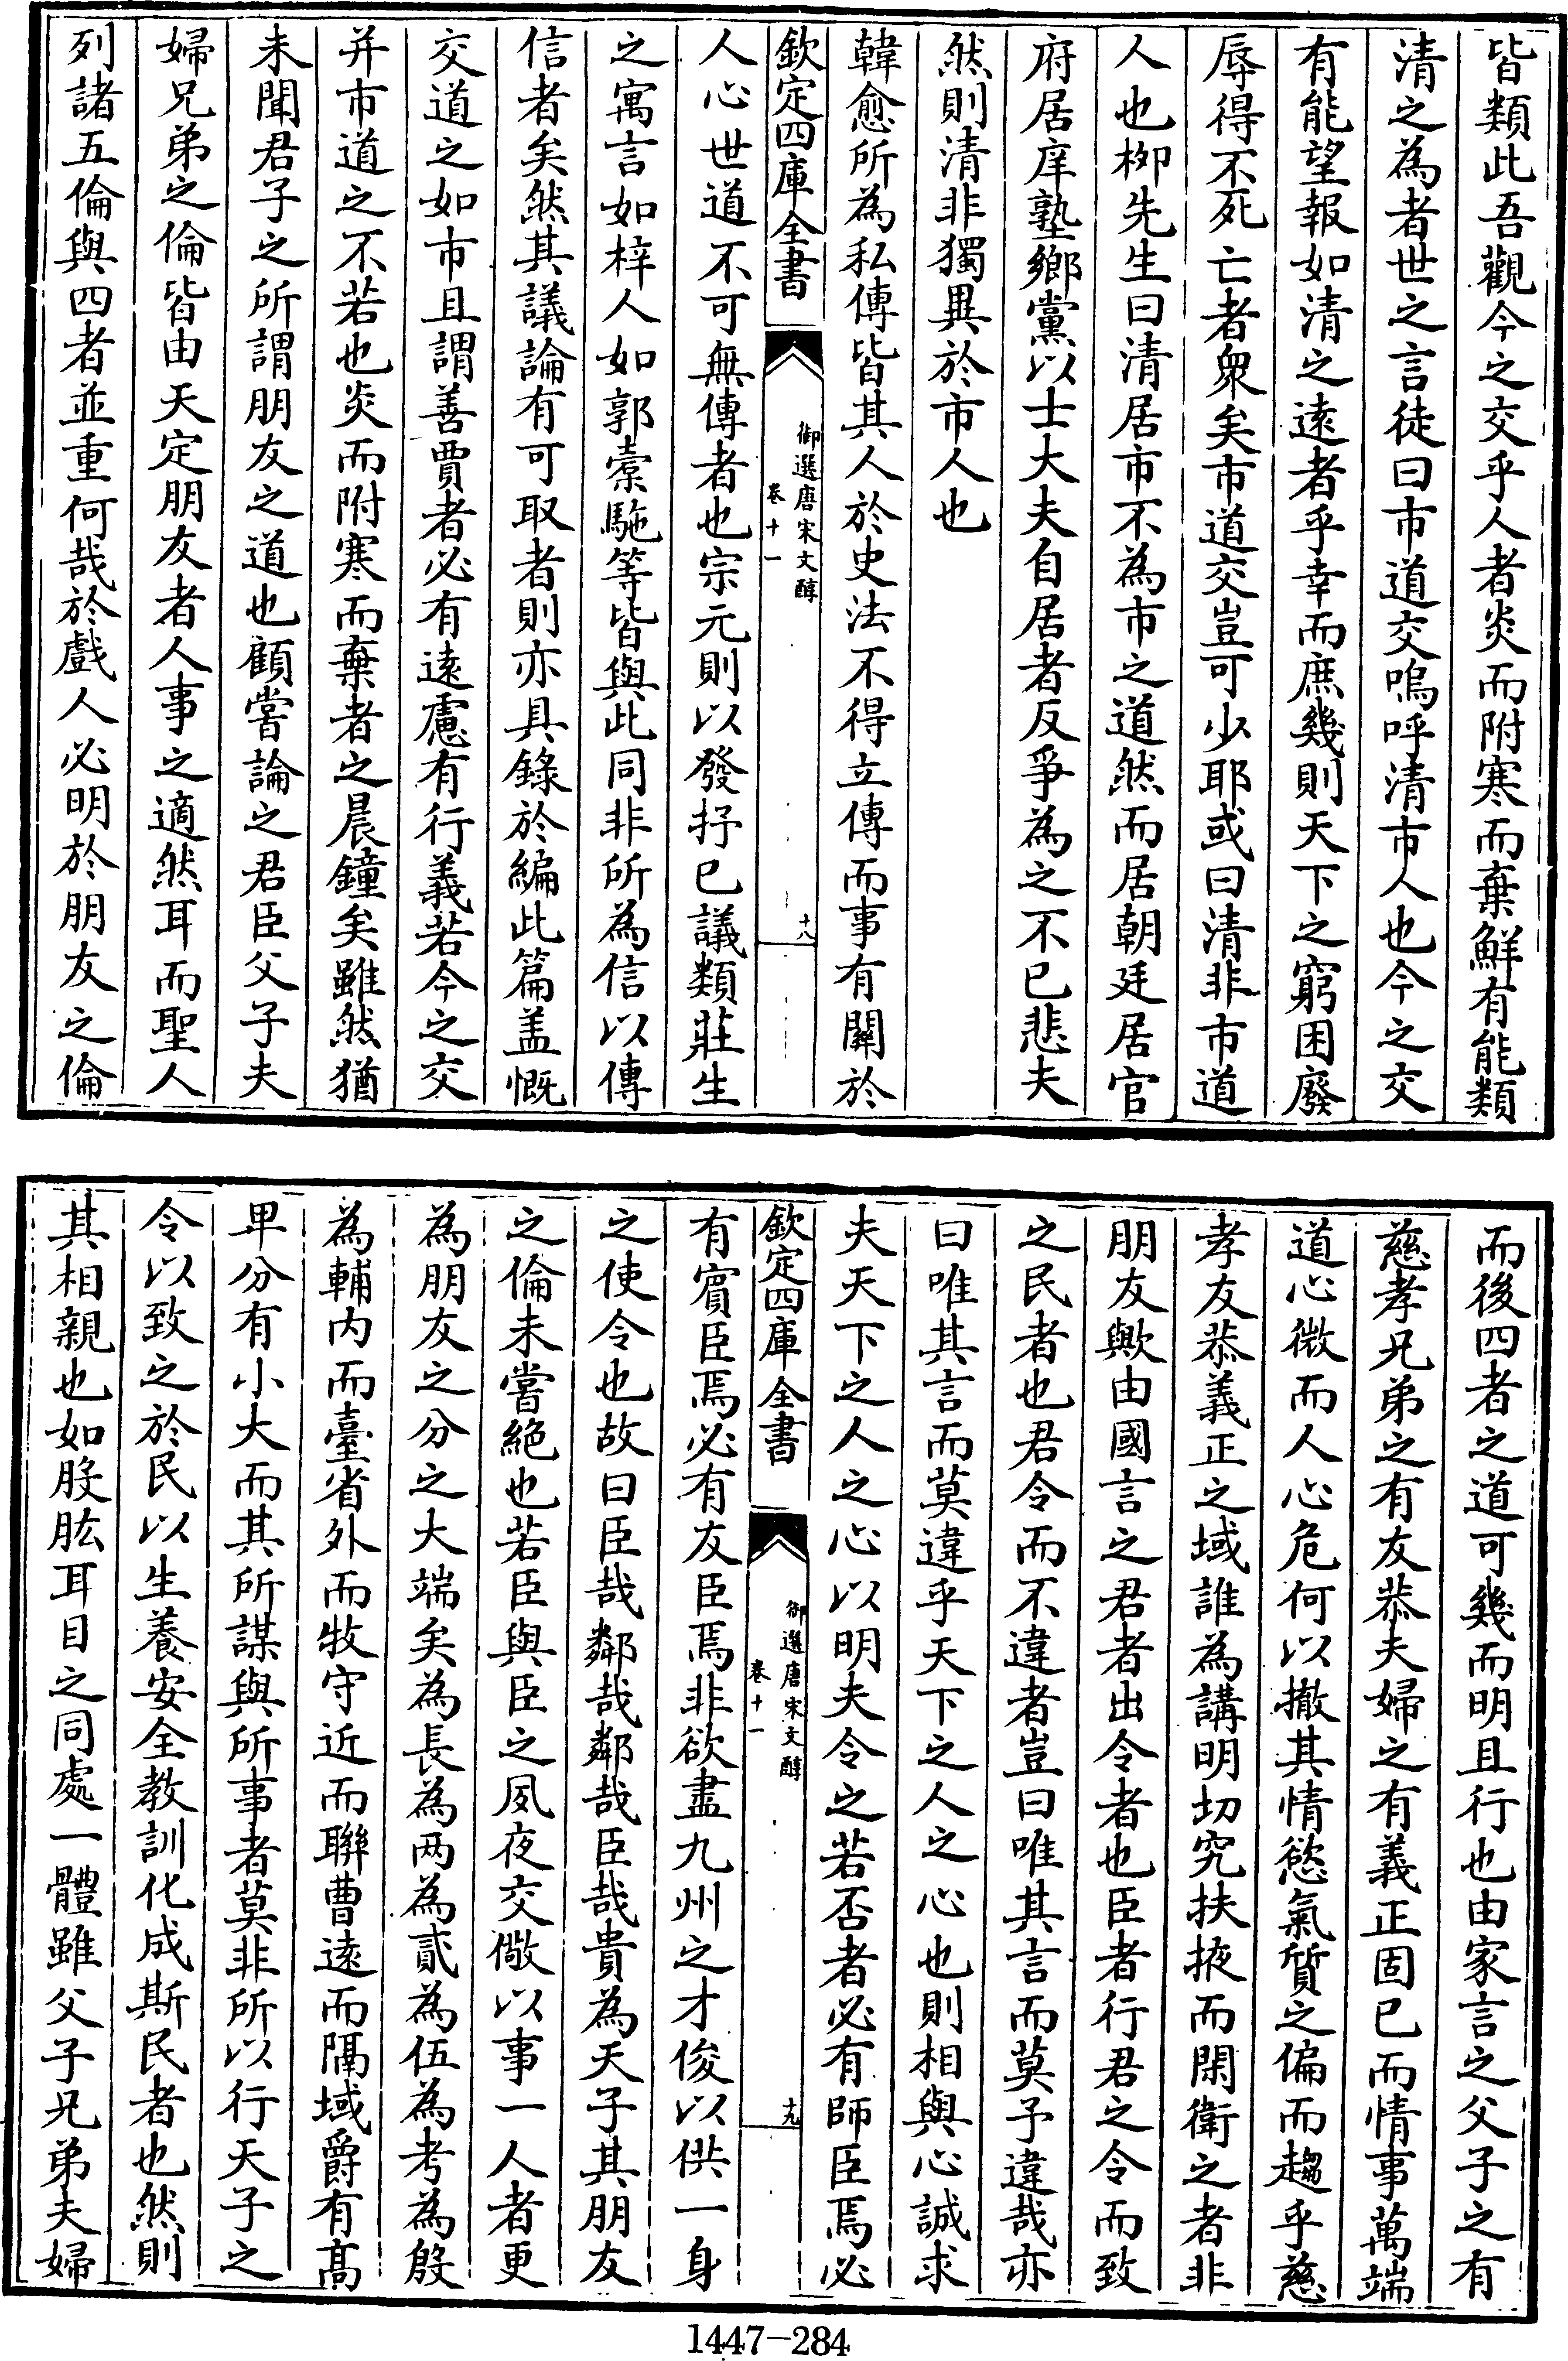 皆類此吾觀今之交乎人者炎而附寒而棄鮮有能類
清之為者世之言徒曰市道交嗚呼清市人也今之交
有能望報如清之遠者乎幸而庶幾則天下之窮困廢
辱得不死亡者衆矣市道交豈可少耶或曰清非市道
人也栁先生曰清居市不為市之道然而居朝廷居官
府居庠塾鄉黨以士大夫自居者反爭為之不已悲夫
然則清非獨異於市人也
韓愈所為私傳皆其人於史法不得立傳而事有關於
欽定四庫全書
御選唐宋文醇
卷十一
十八
人心世道不可無傳者也宗元則以發抒已議類莊生
之寓言如梓人如郭槖駞等皆與此同非所為信以傳
信者矣然其議論有可取者則亦具錄於編此篇盖慨
交道之如市且謂善賈者必有遠慮有行義若今之交
并市道之不若也炎而附寒而棄者之晨鐘矣雖然猶
未聞君子之所謂朋友之道也顧嘗論之君臣父子夫
婦兄弟之倫皆由天定朋友者人事之適然耳而聖人
列諸五倫與四者並重何哉於戲人必明於朋友之倫
而後四者之道可幾而明且行也由家言之父子之有
慈孝兄弟之有友恭夫婦之有義正固已而情事萬端
道心微而人心危何以撤其情慾氣質之偏而趨乎慈
孝友恭義正之域誰為講明切究扶掖而閑衛之者非
朋友歟由國言之君者出令者也臣者行君之令而致
之民者也君令而不違者豈曰唯其言而莫予違哉亦
曰唯其言而莫違乎天下之人之心也則相與心誠求
夫天下之人之心以明夫令之若否者必有師臣焉必
欽定四庫全書
御選唐宋文醇
卷十一
十九
有賓臣焉必有友臣焉非欲盡九州之才俊以供一身
之使令也故曰臣哉鄰哉鄰哉臣哉貴為天子其朋友
之倫未嘗絶也若臣與臣之夙夜交儆以事一人者更
為朋友之分之大端矣為長為两為貳為伍為考為殷
為輔内而臺省外而牧守近而聯曹遠而隔域爵有髙
卑分有小大而其所謀與所事者莫非所以行天子之
令以致之於民以生養安全教訓化成斯民者也然則
其相親也如股肱耳目之同處一體雖父子兄弟夫婦
1447-284